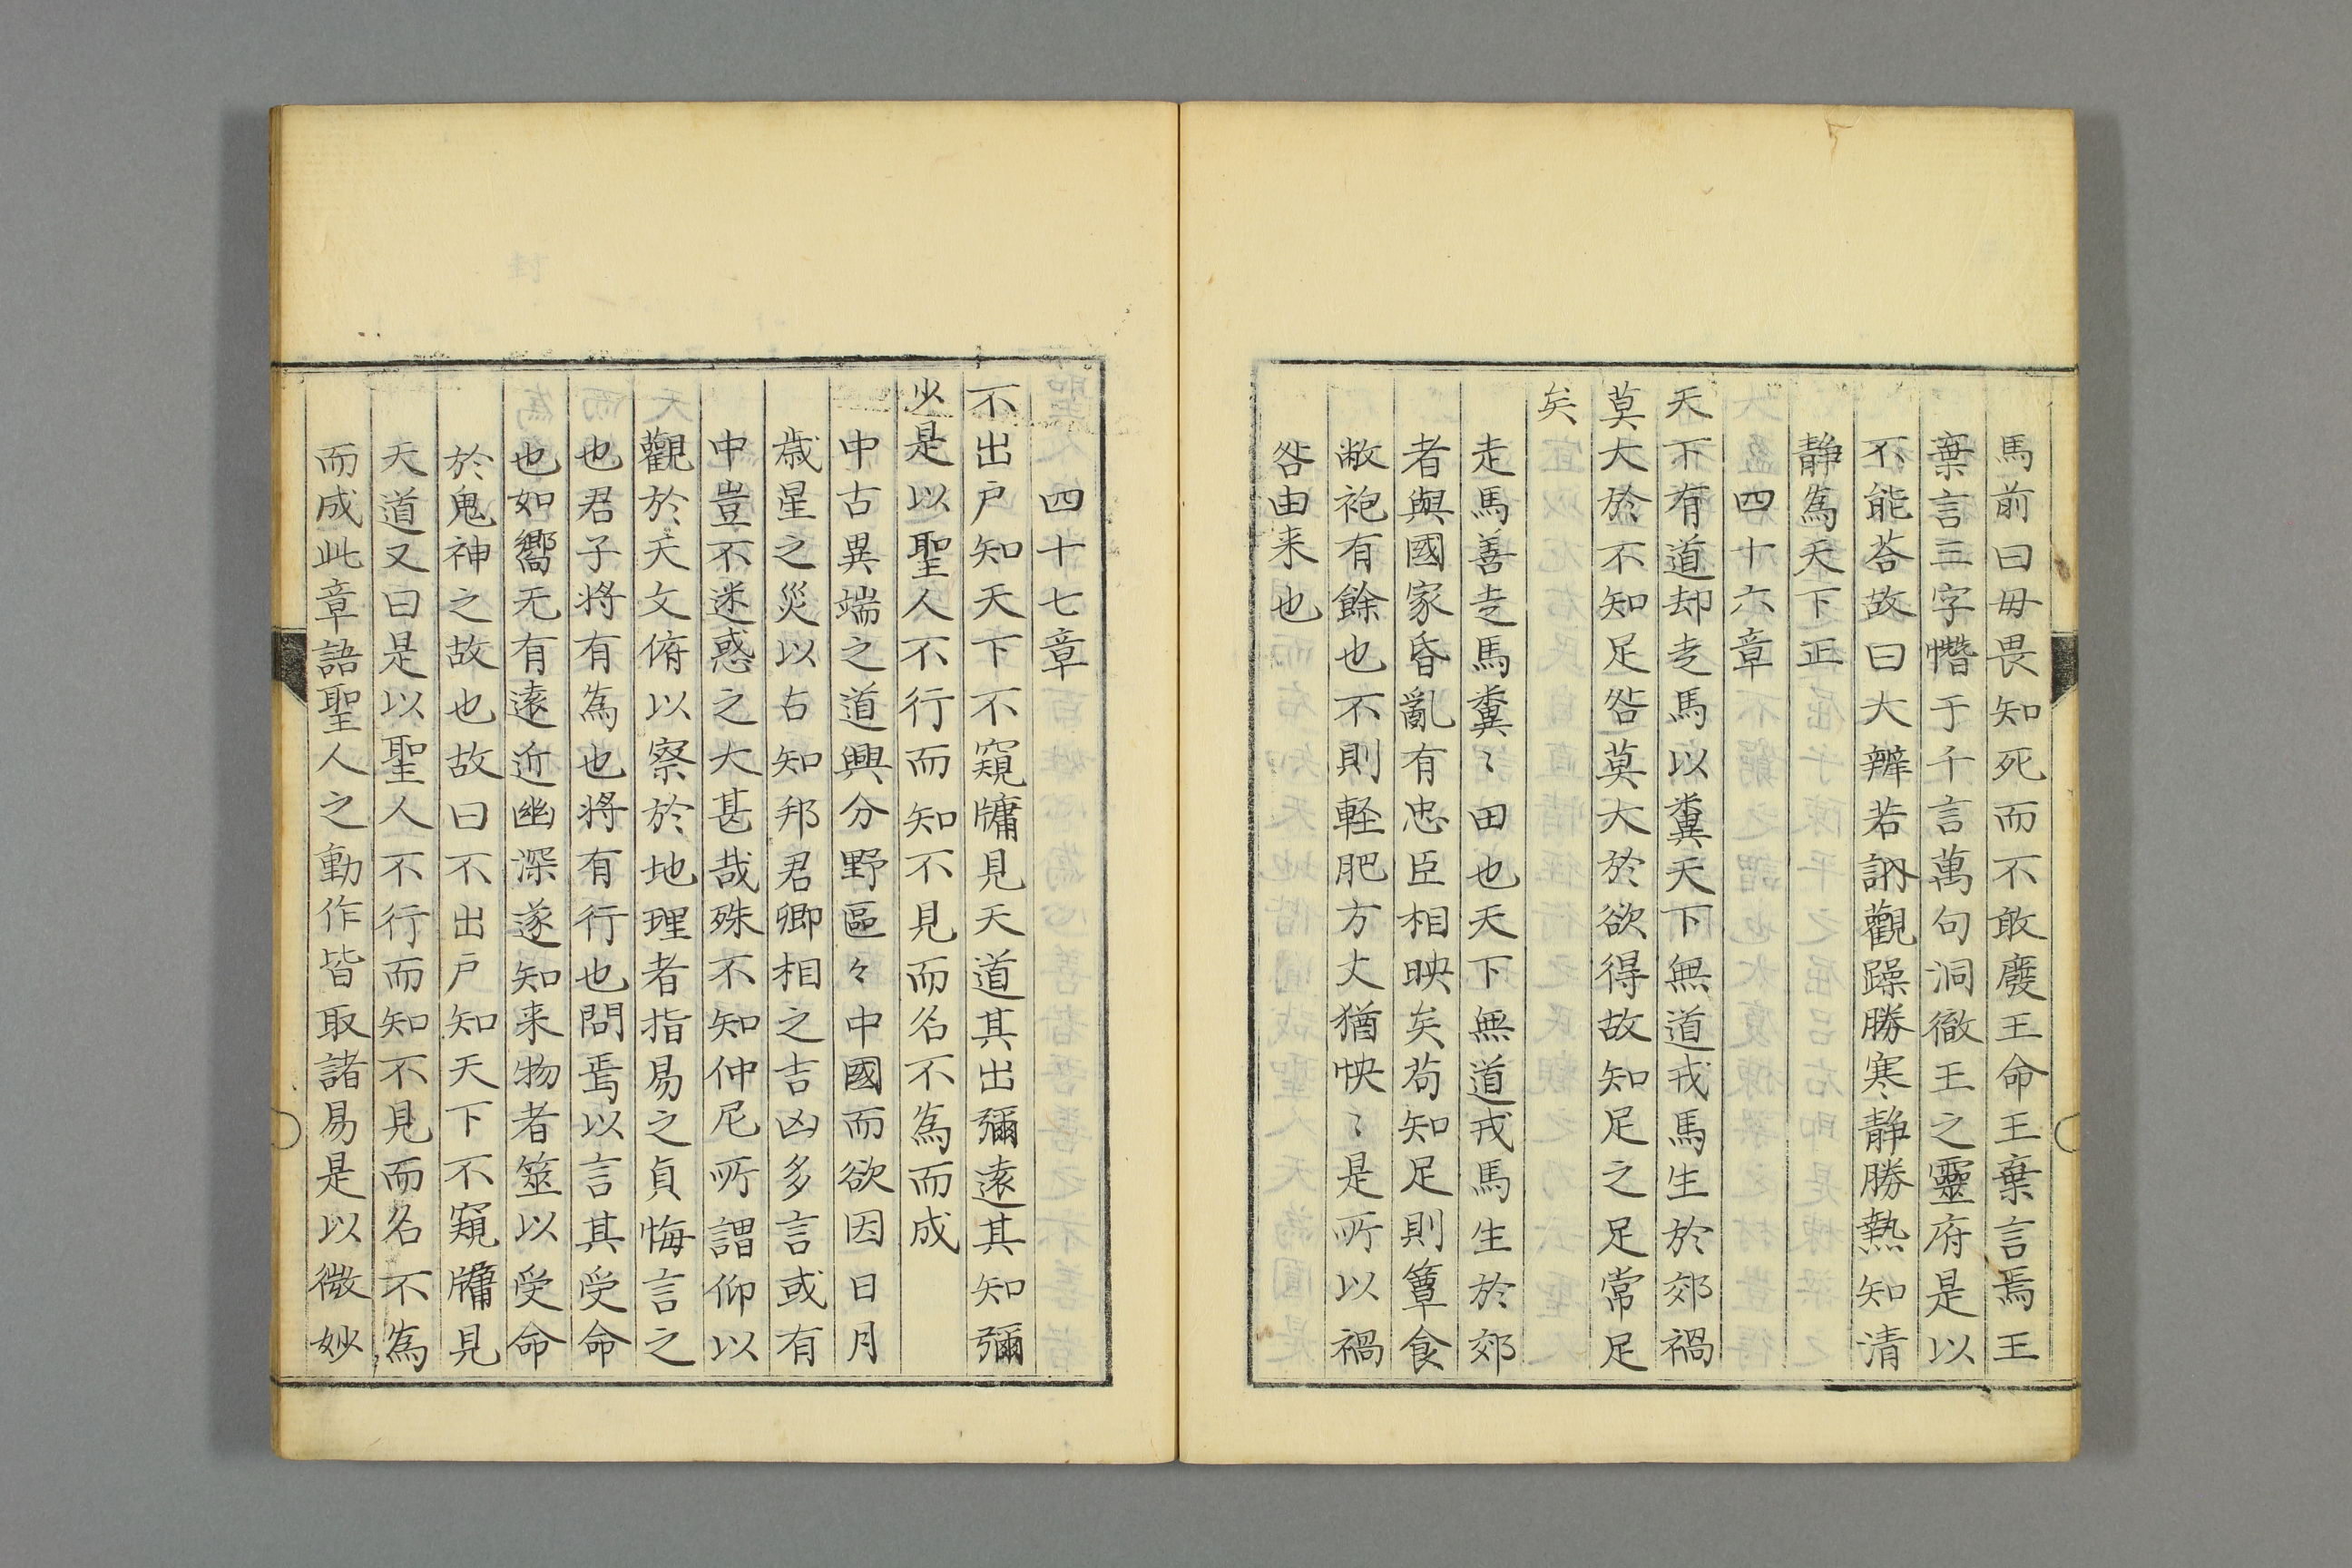 馬前曰毋畏知死而不敢廢王命王棄言焉王
棄言三字憯于千言萬句洞徹王之靈府是以
不能荅故曰大辨若訥觀躁勝寒静勝熱知清
静為天下正
四十六章
天下有道却走馬以糞天下無道戎馬生於郊禍
莫大於不知足咎莫大於欲得故知足之足常足
矣
走馬善走馬糞〻田也天下無道戎馬生於郊
者與國家昏亂有忠臣相映矣苟知足則簞食
敝袍有餘也不則軽肥方丈猶怏〻是所以禍
咎由来也
四十七章
不出戶知天下不窺牗見天道其出彌遠其知彌
少是以聖人不行而知不見而名不為而成
中古異端之道興分野區々中國而欲因日月
歳星之災以占知邦君卿相之吉凶多言或有
中豈不迷惑之大甚哉殊不知仲尼所謂仰以
觀於天文俯以察於地理者指易之貞悔言之
也君子将有為也将有行也問焉以言其受命
也如嚮无有遠近幽深遂知来物者筮以受命
於鬼神之故也故曰不出戶知天下不窺牗見
天道又曰是以聖人不行而知不見而名不為
而成此章語聖人之動作皆取諸易是以微妙